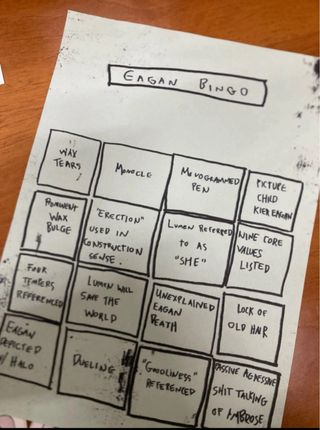 EAGAN BINGO
WAX
TEARS
MONOCLE
MONOGRAMMED
PEN
PICTURE
CHILD
KIER EAGAN
PROMINENT
WAX
BULGE
"ERECTION"
USED IN
CONSTRUCTION
SENSE.
LUMEN REFERRED
TO AS
"SHE"
NINE CORE
VALUES
LISTED
FOUR
TEMPERS
REFERENCED
LUMEN WILL
SAVE THE
WORLD
UNEXPLAINED
EAGAN
DEATH
LOCK OF
OLD HAIR
EAGAN
DEPICTED
W/ HALO
DUELING
"GOODLINESS"
REFERENCED
PASSIVE AGRESSIVE
SHIT TALKING
OF AMBROSE